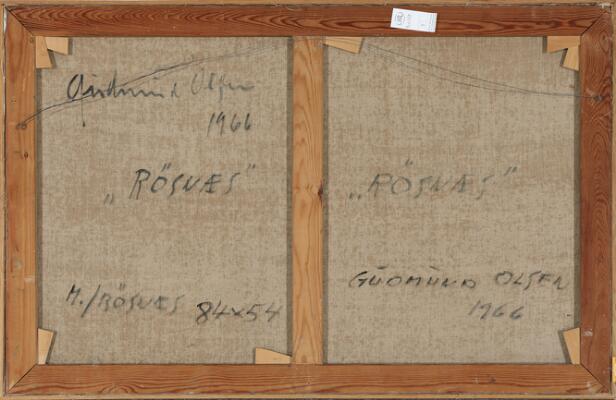 Gudmund Olsen
1966
„RÖSNÆS"
M./RÖSNÆS 84x54
„RÖSNÆS"
GÜDMÜND OLSEN
1966